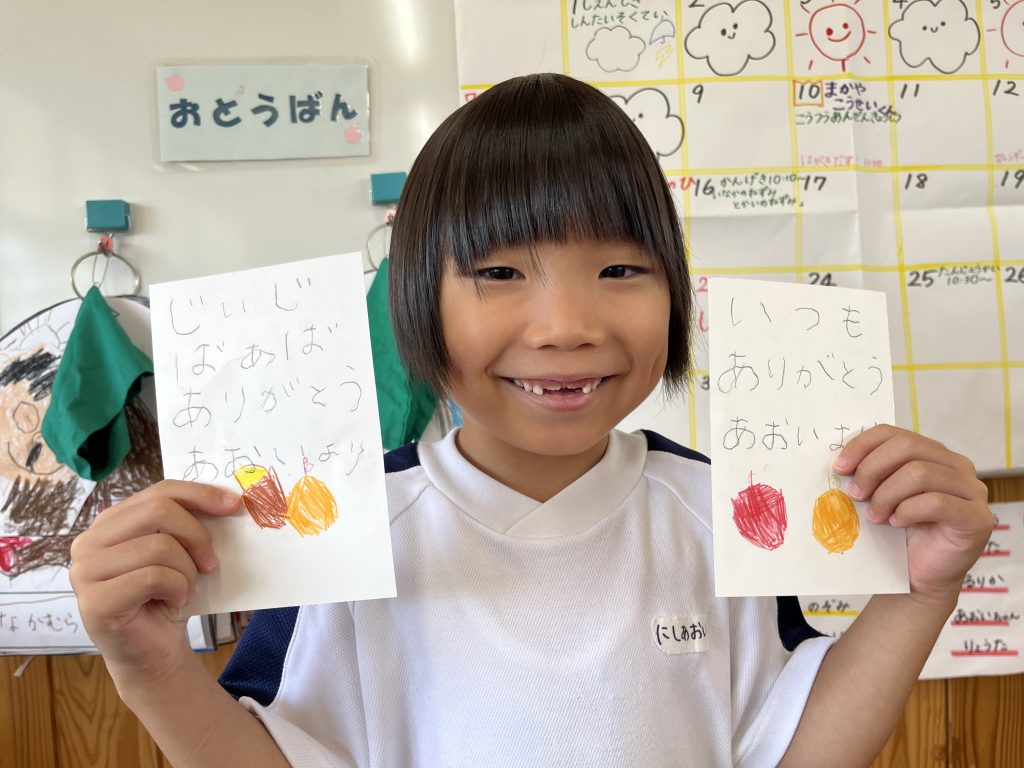 おとうばん
1 しえんじき
しんたいそくてい
2
4
5
9
10 まがや
こうせいくん
11
12
16 かんげき10:10～
いなかのねずみ
とかいのねずみ
17
18
19
24
25 たんじょうかい
10:30～
26
じぃじ
ばぁば
ありがとう
あおいより
いつも
ありがとう
あおいより
にしあおい
なかむら
のぞみ
るりか
あおいちゃん
りょうた